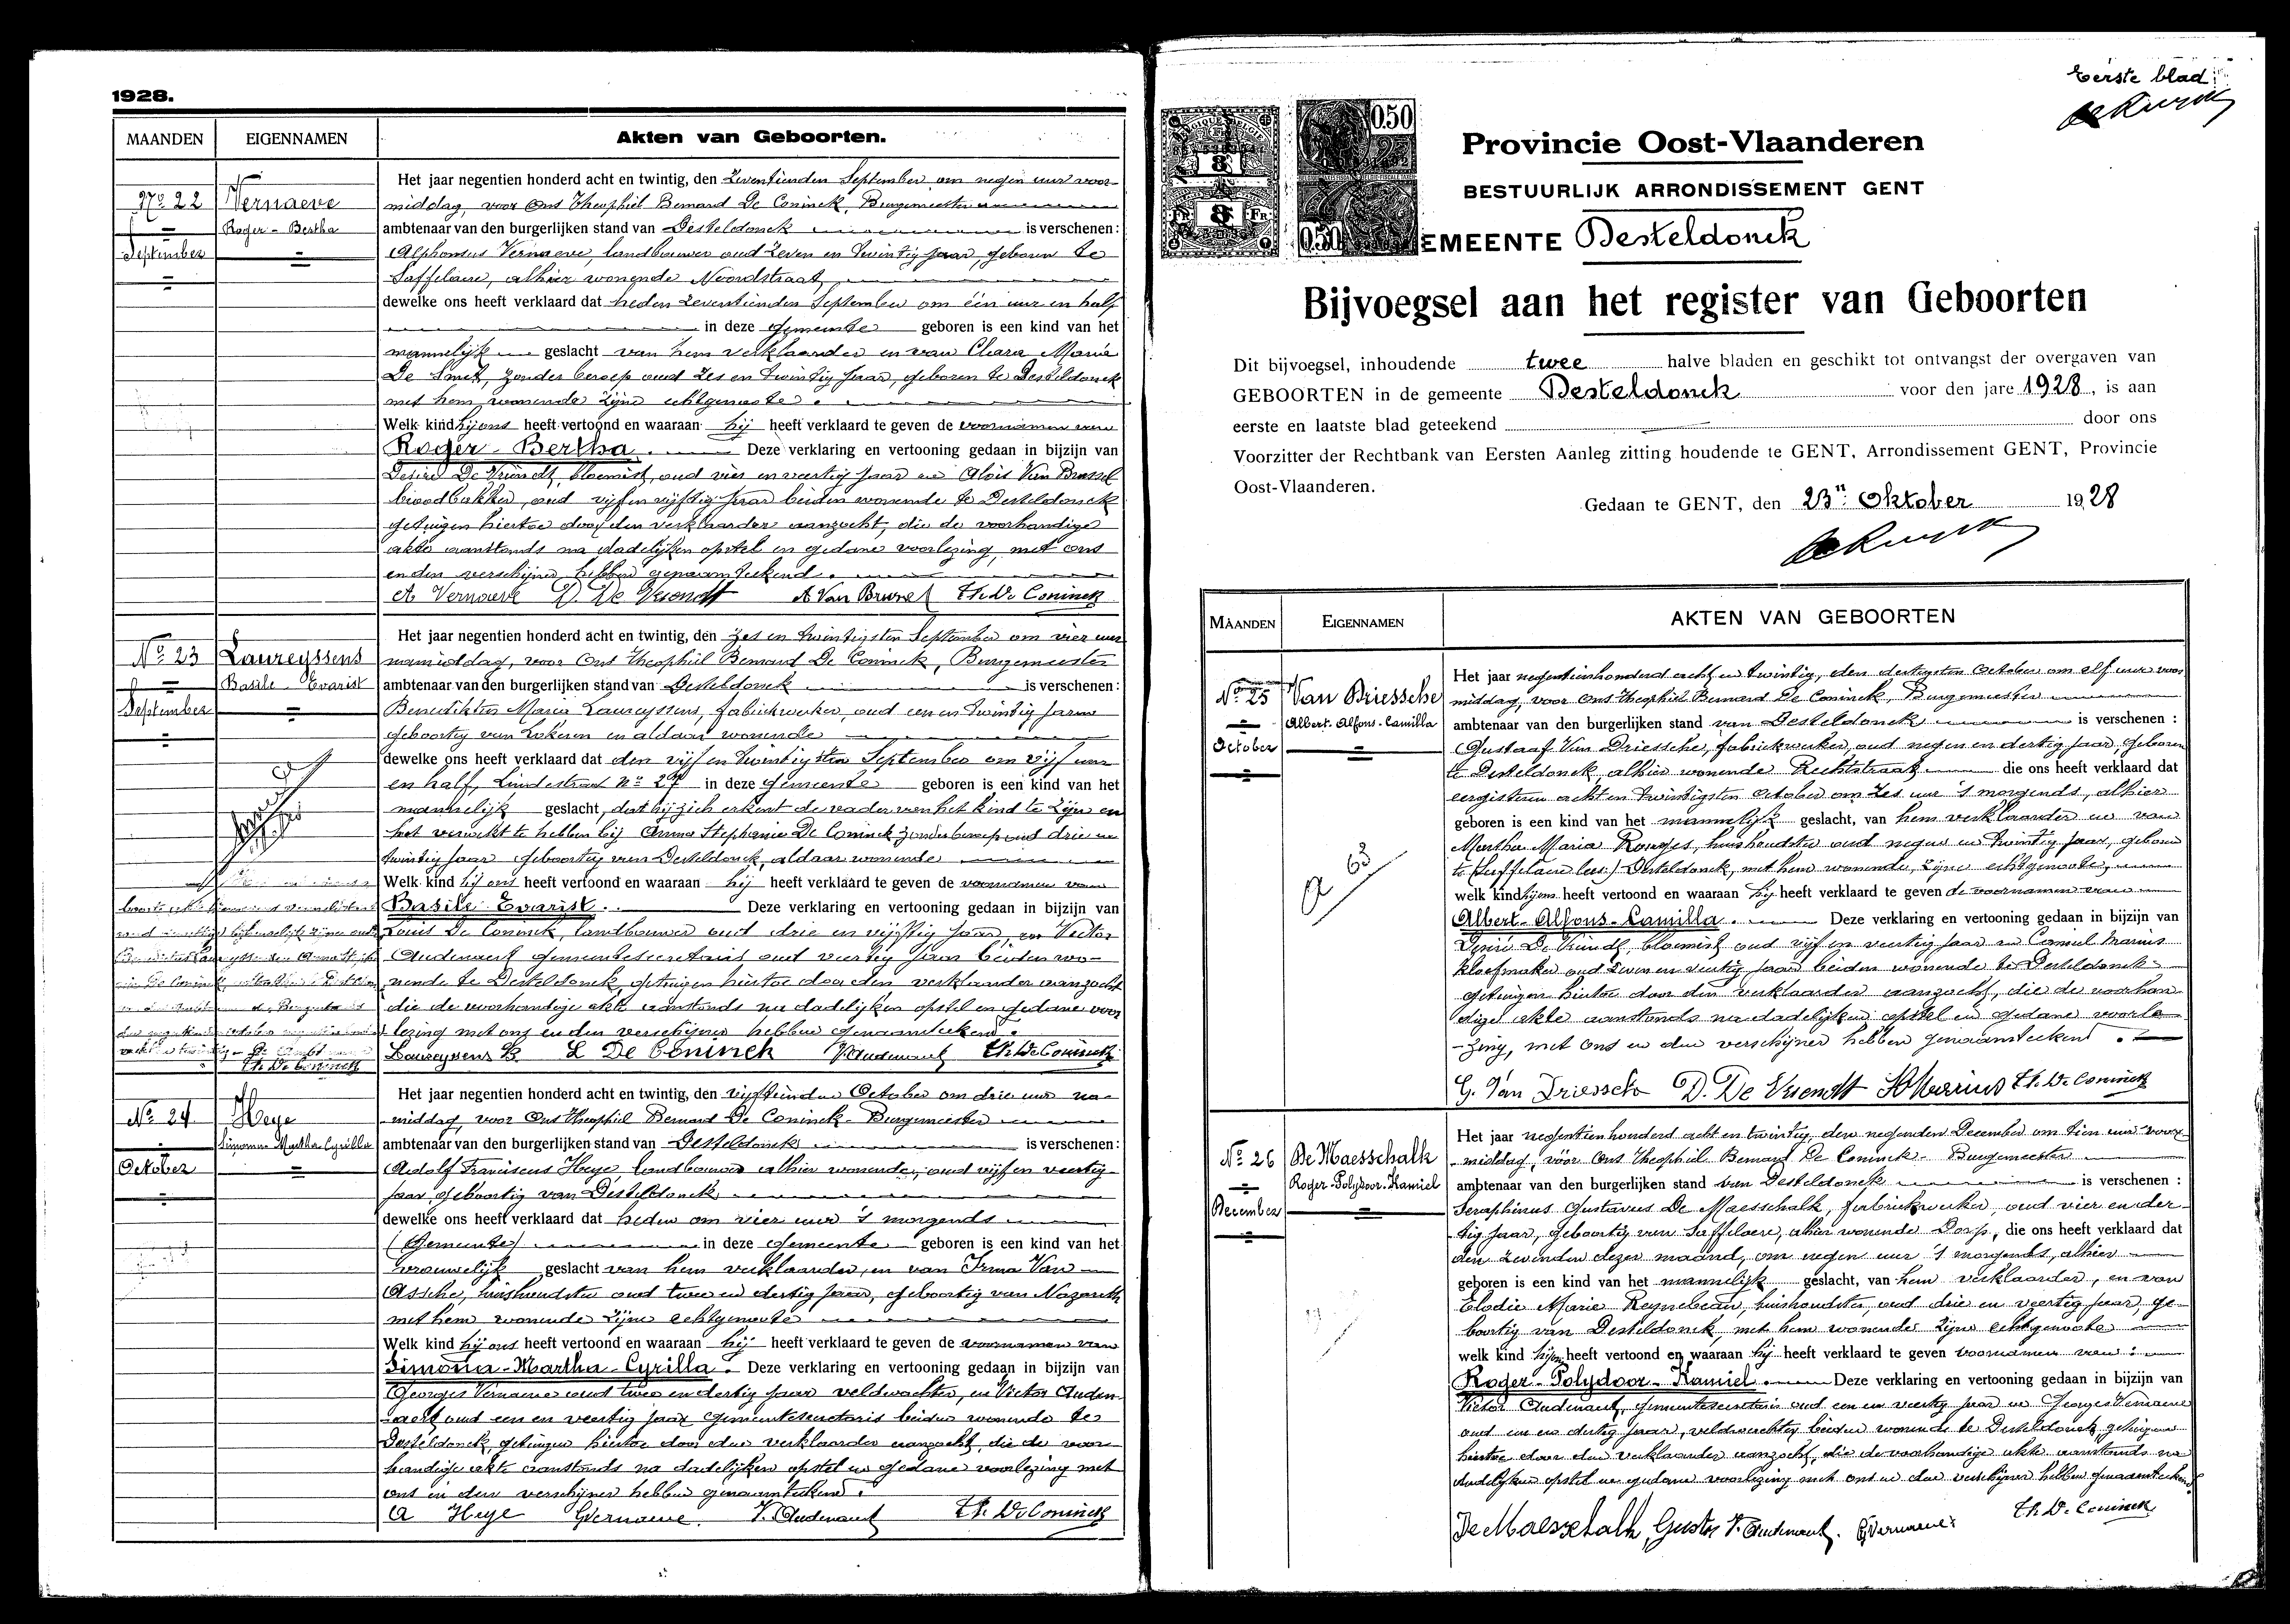 1928.
MAANDEN
EIGENNAMEN
Akten van Geboorten.
No 22
September
Vernaeve
Roger - Bertha
Het jaar negentien honderd acht en twintig, den Zeventienden September om negen uur voor-
middag, voor Ons Theophiel Bernard De Coninck, Burgemeester
ambtenaar van den burgerlijken stand van Desteldonck is verschenen:
Alphonsus Vernaeve, landbouwer oud Zeven en twintig jaar, geboren te
Saffelaere, alhier wonende Noordstraat
dewelke ons heeft verklaard dat heden zeventienden September om één uur en half
in deze gemeente geboren is een kind van het
mannelijk geslacht van hem verklaarder en van Clara Maria
De Smet, zonder beroep oud Zes en twintig jaar, geboren te Desteldonck
met hem wonende zijne echtgenoote.
Welk kind hij ons heeft vertoond en waaraan hij heeft verklaard te geven de voornamen van
Roger - Bertha. Deze verklaring en vertooning gedaan in bijzijn van
Desiré De Vriendt, bloemist, oud vier en veertig jaar en Aloïs Van Brussel
broodbakker, oud vijf en vijftig jaar beiden wonende te Desteldonck
getuigen hiertoe door den verklaarder aanzocht, die de voorhandige
akte aanstonds na dadelijken opstel en gedane voorlezing, met ons
en den verschijner hebben genaamteekend.
A Vernaeve D. De Vriendt A Van Brussel Th. De Coninck
No 23
September
Laureyssens
Basile - Evarist
Het jaar negentien honderd acht en twintig, den Zes en twintigsten September om vier uur
namiddag, voor Ons Theophiel Bernard De Coninck, Burgemeester
ambtenaar van den burgerlijken stand van Desteldonck is verschenen:
Benediktus Maria Laureyssens, fabriekwerker, oud een en twintig jaren
geboortig van Lokeren en aldaar wonende
dewelke ons heeft verklaard dat den vijf en twintigsten September om vijf uur
en half, Lindestraat No 27 in deze gemeente geboren is een kind van het
mannelijk geslacht, dat hij zich erkent de vader van het kind te zijn en
het verwekt te hebben bij Anna Stephanie De Coninck zonder beroep oud drie en
twintig jaar geboortig van Desteldonck, aldaar wonende
Welk kind hij ons heeft vertoond en waaraan hij heeft verklaard te geven de voornamen van
Basile Evarist. Deze verklaring en vertooning gedaan in bijzijn van
Louis De Coninck, landbouwer oud drie en vijftig jaar, en Victor
Audenaert gemeentesecretaris oud veertig jaar beiden wo-
nende te Desteldonck, getuigen hiertoe door den verklaarder aanzocht
die de voorhandige akte aanstonds na dadelijken opstel en gedane voor
lezing met ons en den verschijner hebben genaamteekend.
Laureyssens B L De Coninck V. Audenaert Th. De Coninck
Th. De Coninck
No 24
October
Heye
Simonna-Martha-Cyrilla
Het jaar negentien honderd acht en twintig, den vijftienden October om drie uur na-
middag, voor Ons Theophiel Bernard De Coninck - Burgemeester
ambtenaar van den burgerlijken stand van Desteldonck is verschenen:
Adolf Franciscus Heye landbouwer alhier wonende, oud vijf en veertig
jaar, geboortig van Desteldonck
dewelke ons heeft verklaard dat heden om vier uur 's morgends
(Gemeente) in deze gemeente geboren is een kind van het
vrouwelijk geslacht van hem verklaarder, en van Irma Van
Assche, huishoudster oud twee en dertig jaar, geboortig van Nazareth
met hem wonende zijne echtgenoote
Welk kind hij ons heeft vertoond en waaraan hij heeft verklaard te geven de voornamen van
Simonna-Martha-Cyrilla. Deze verklaring en vertooning gedaan in bijzijn van
Georges Vernaeve oud twee en dertig jaar veldwachter, en Victor Auden-
aert oud een en veertig jaar gemeentesecretaris beiden wonende te
Desteldonck, getuigen hiertoe door den verklaarder aanzocht, die de voor-
handige akte aanstonds na dadelijken opstel en gedane voorlezing met
ons en den verschijner hebben genaamteekend.
A Heye GVernaeve. V. Audenaert Th. De Coninck
Eerste blad
0.50
8
8
FR
FR
0.50
Provincie Oost-Vlaanderen
BESTUURLIJK ARRONDISSEMENT GENT
EMEENTE Desteldonck
Bijvoegsel aan het register van Geboorten
Dit bijvoegsel, inhoudende twee halve bladen en geschikt tot ontvangst der overgaven van
GEBOORTEN in de gemeente Desteldonck voor den jare 1928, is aan
eerste en laatste blad geteekend door ons
Voorzitter der Rechtbank van Eersten Aanleg zitting houdende te GENT, Arrondissement GENT, Provincie
Oost-Vlaanderen.
Gedaan te GENT, den 23n Oktober 1928
MAANDEN
EIGENNAMEN
AKTEN VAN GEBOORTEN
No 25
October
Van Driessche
Albert-Alfons-Camilla
Het jaar negentienhonderd acht en twintig, den dertigsten October om elf uur voor
middag, voor Ons Theophiel Bernard De Coninck, Burgemeester
ambtenaar van den burgerlijken stand van Desteldonck is verschenen :
Gustaaf Van Driessche, fabriekwerker, oud negen en dertig jaar, geboren
te Desteldonck alhier wonende Rechtstraat die ons heeft verklaard dat
eergisteren acht en twintigsten October om zes uur 's morgends, alhier
geboren is een kind van het mannelijk geslacht, van hem verklaarder en van
Martha Maria huishoudster oud negen en twintig jaar, geboren
te Desteldonck, met hem wonende, zijne echtgenoote,
welk kind hij ons heeft vertoond en waaraan hij heeft verklaard te geven de voornamen van
Albert-Alfons-Camilla. Deze verklaring en vertooning gedaan in bijzijn van
Desiré De Vriendt, bloemist oud vijf en veertig jaar en Camiel Marins
kloefmaker oud zeven en veertig jaar beiden wonende te Desteldonck
getuigen hiertoe door den verklaarder aanzocht, die de voorhan
dige akte aanstonds na dadelijken opstel en gedane voorle
-zing, met ons en den verschijner hebben genaamteekend.
G. Van Driessche D. De Vriendt Th. De Coninck
No 26
December
De Maesschalk
Roger-Polydoor-Kamiel
Het jaar negentienhonderd acht en twintig, den negenden December om tien uur voor-
middag, voor Ons Theophiel Bernard De Coninck - Burgemeester
ambtenaar van den burgerlijken stand van Desteldonck is verschenen :
Seraphinus Gustavus De Maesschalk, fabriekwerker, oud vier en der-
tig jaar, geboortig van Saffelaere, alhier wonende Dorp, die ons heeft verklaard dat
den zevenden dezer maand, om negen uur 's morgends, alhier
geboren is een kind van het mannelijk geslacht, van hem verklaarder, en van
Elodie Marie Reynebeau, huishoudster, oud drie en veertig jaar, ge-
boortig van Desteldonck, met hem wonende zijne echtgenoote
welk kind hij ons heeft vertoond en waaraan hij heeft verklaard te geven voornamen van :
Roger-Polydoor-Kamiel. Deze verklaring en vertooning gedaan in bijzijn van
Victor Audenaert, gemeentesecretaris oud een en veertig jaar en Georges Vernaeve
oud en dertig jaar, veldwachter beiden wonende te Desteldonck, getuigen
hiertoe door den verklaarder aanzocht, die de voorhandige akte aanstonds na
dadelijken opstel en gedane voorlezing met ons en den verschijner hebben genaamteekend
De Maesschalk, Gustav V. Audenaert. GVernaeve. Th. De Coninck